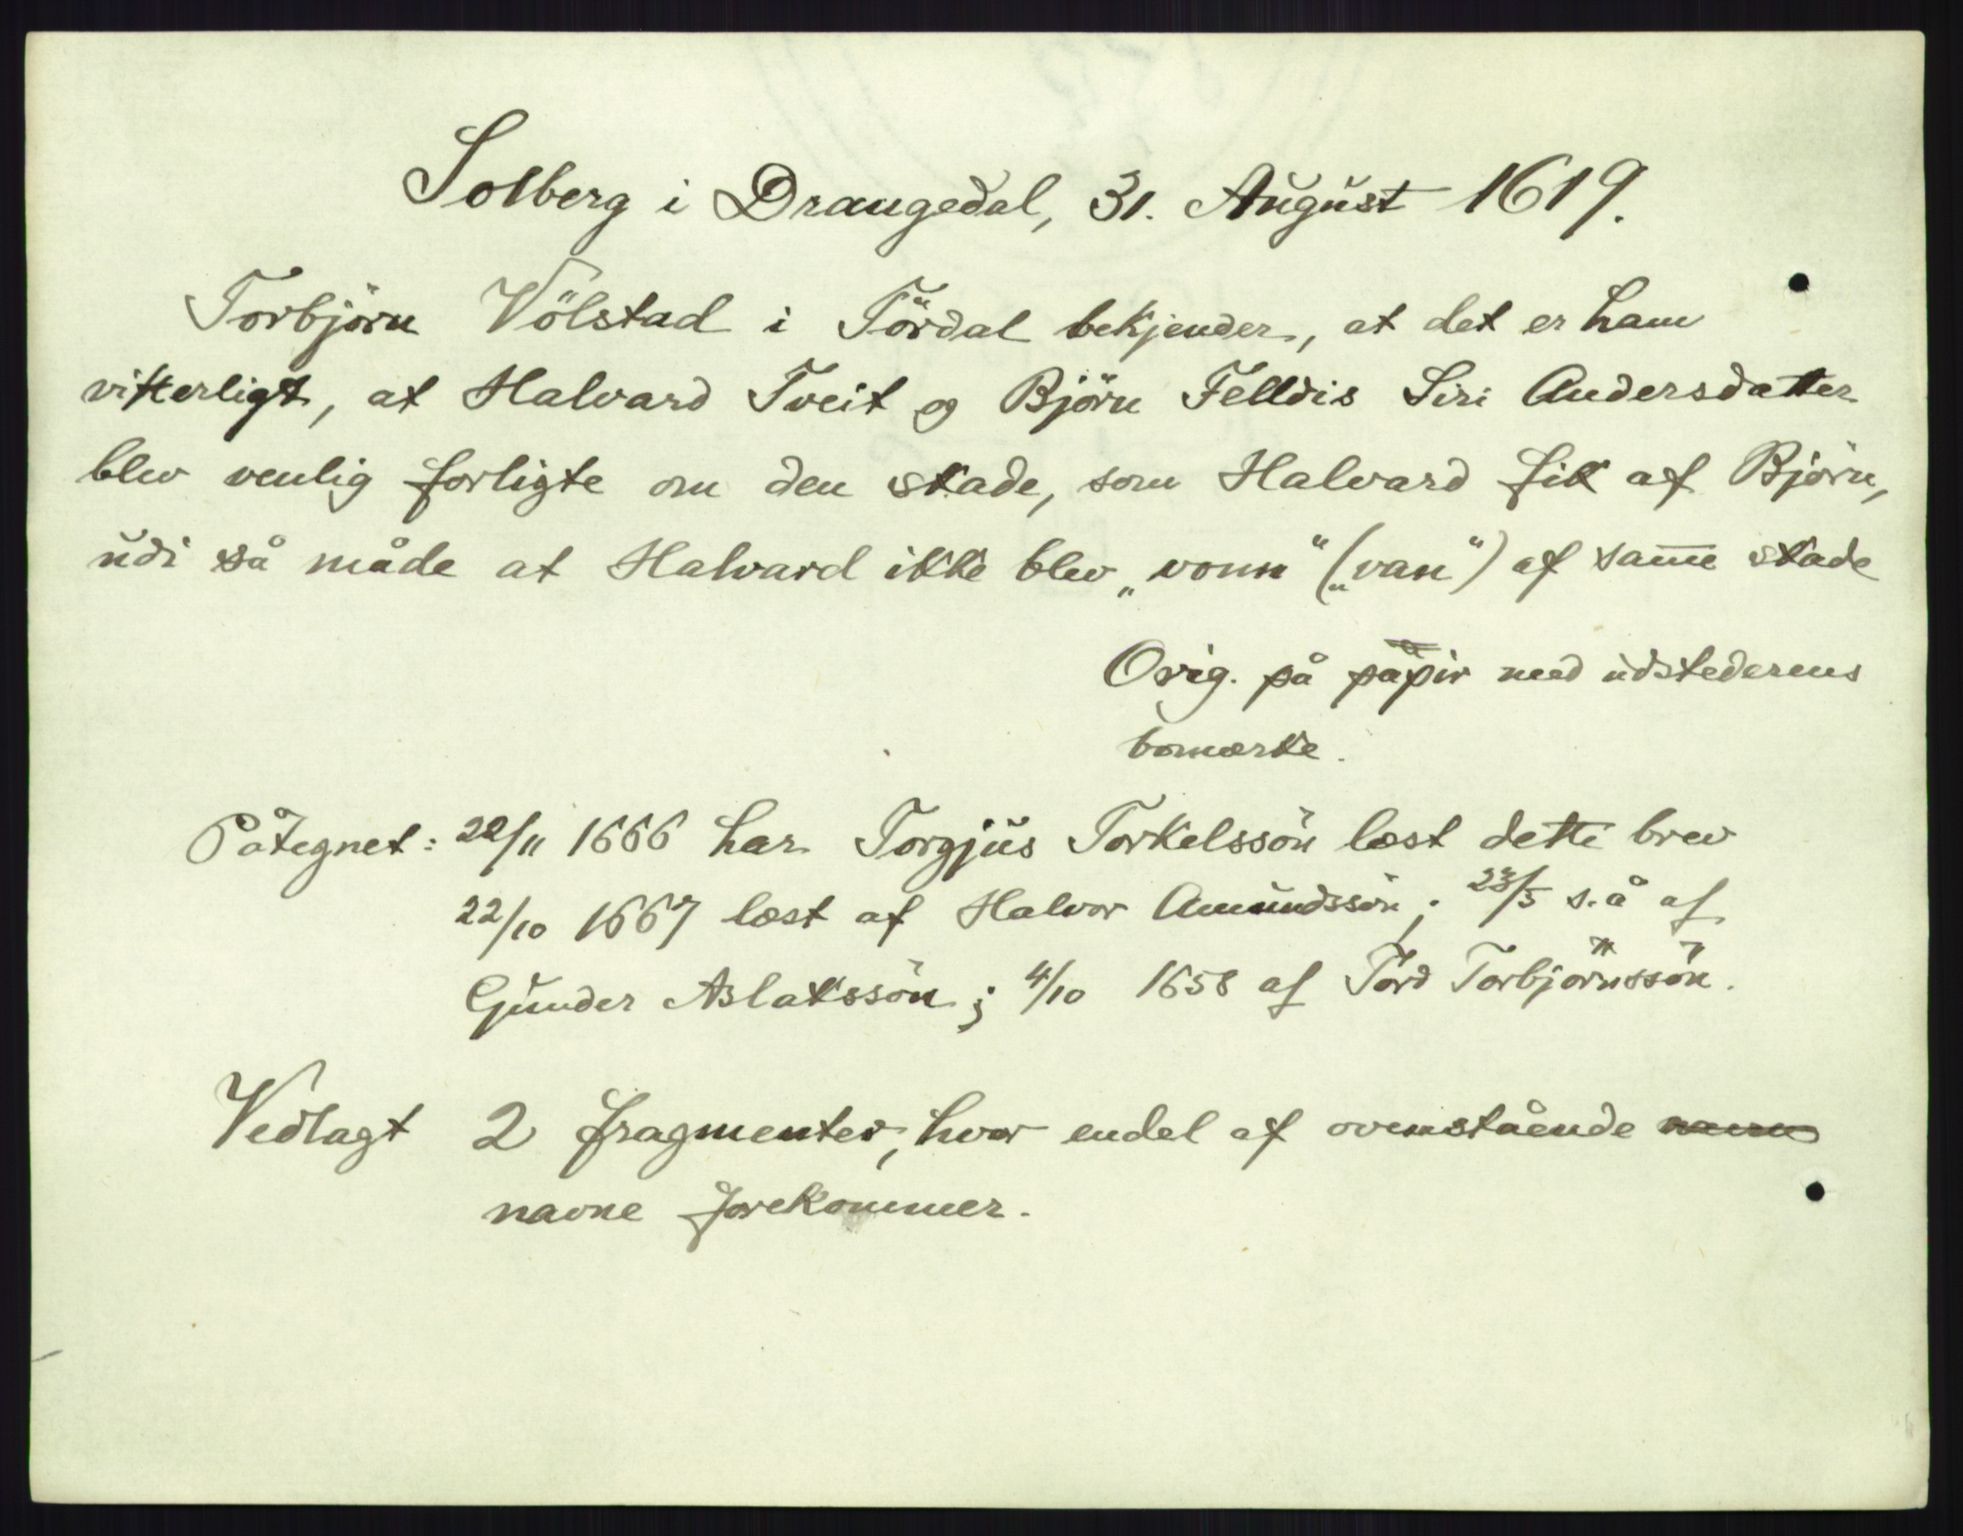 Solberg i Draugedal, 31. August 1619.
Torbjörn Völstad i Tördal bekjender, at det er ham
vitterligt, at Halvard Tveit og Björn Felldis Siri Andersdatter
blev venlig forligte om den skade, som Halvard fik af Björn,
udi så måde at Halvard ikke blev „vonn“ („van“) af samme skade
Orig. på papir med udstederens
bomærke.
Påtegnet: 22/11 1666 har Torgjus Torkelssön læst dette brev
22/10 1667 læst af Halvor Amundssön; 23/5 s. å af
Gunder Aslakssön; 4/10 1658 af Tord Torbjörnssön.
Vedlagt 2 fragmenter, hvor endel af ovenstående
navne forekommer.